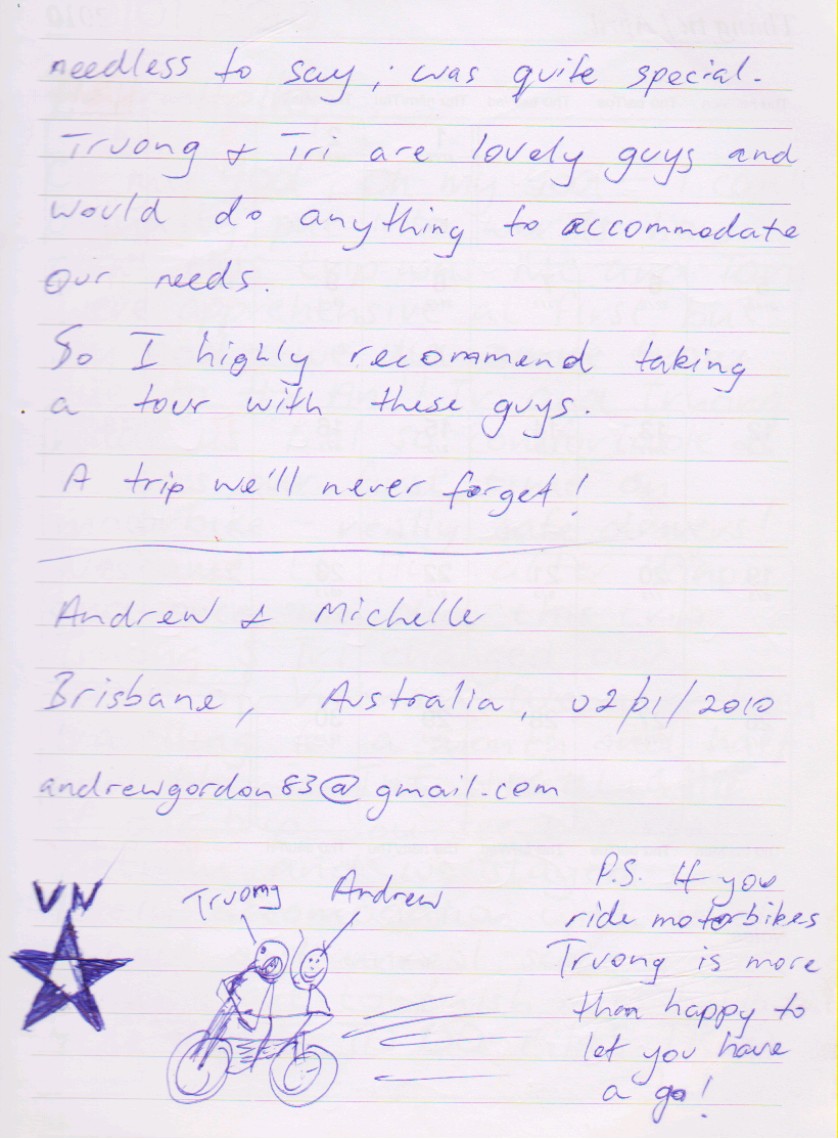 needless to say; was quite special.
Truong & Tri are lovely guys and
would do anything to accommodate
our needs.
So I highly recommend taking
a tour with these guys.
A trip we'll never forget!
Andrew & Michelle
Brisbane, Australia, 02/01/2010
andrewgordon83@gmail.com
VN
Truong Andrew
P.S. If you
ride motorbikes
Truong is more
than happy to
let you have
a go!